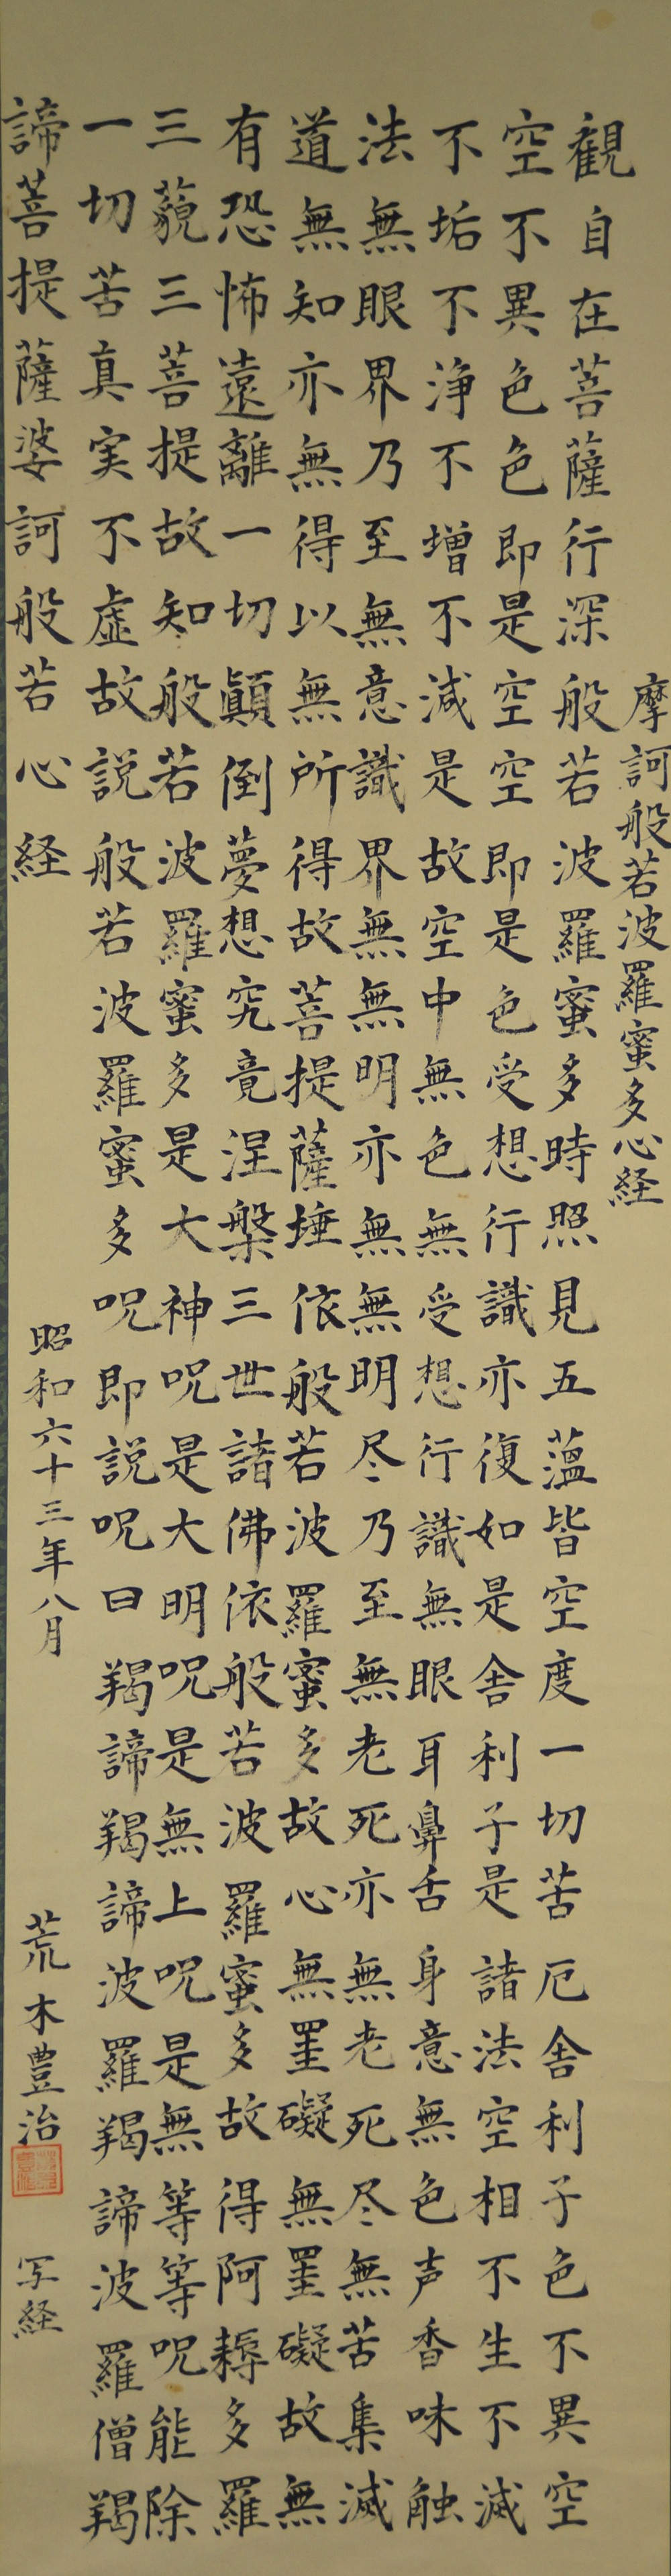 摩訶般若波羅蜜多心経
觀自在菩薩行深般若波羅蜜多時照見五蘊皆空度一切苦厄舎利子色不異空
空不異色色即是空空即是色受想行識亦復如是舎利子是諸法空相不生不滅
不垢不浄不増不減是故空中無色無受想行識無眼耳鼻舌身意無色声香味触
法無眼界乃至無意識界無無明亦無無明尽乃至無老死亦無老死尽無苦集滅
道無知亦無得以無所得故菩提薩埵依般若波羅蜜多故心無罣礙無罣礙故無
有恐怖遠離一切顛倒夢想究竟涅槃三世諸佛依般若波羅蜜多故得阿耨多羅
三藐三菩提故知般若波羅蜜多是大神呪是大明呪是無上呪是無等等呪能除
一切苦真実不虚故説般若波羅蜜多呪即説呪曰 羯諦羯諦波羅羯諦波羅僧羯
諦菩提薩婆訶般若心経
昭和六十三年八月 荒木豊治 写経